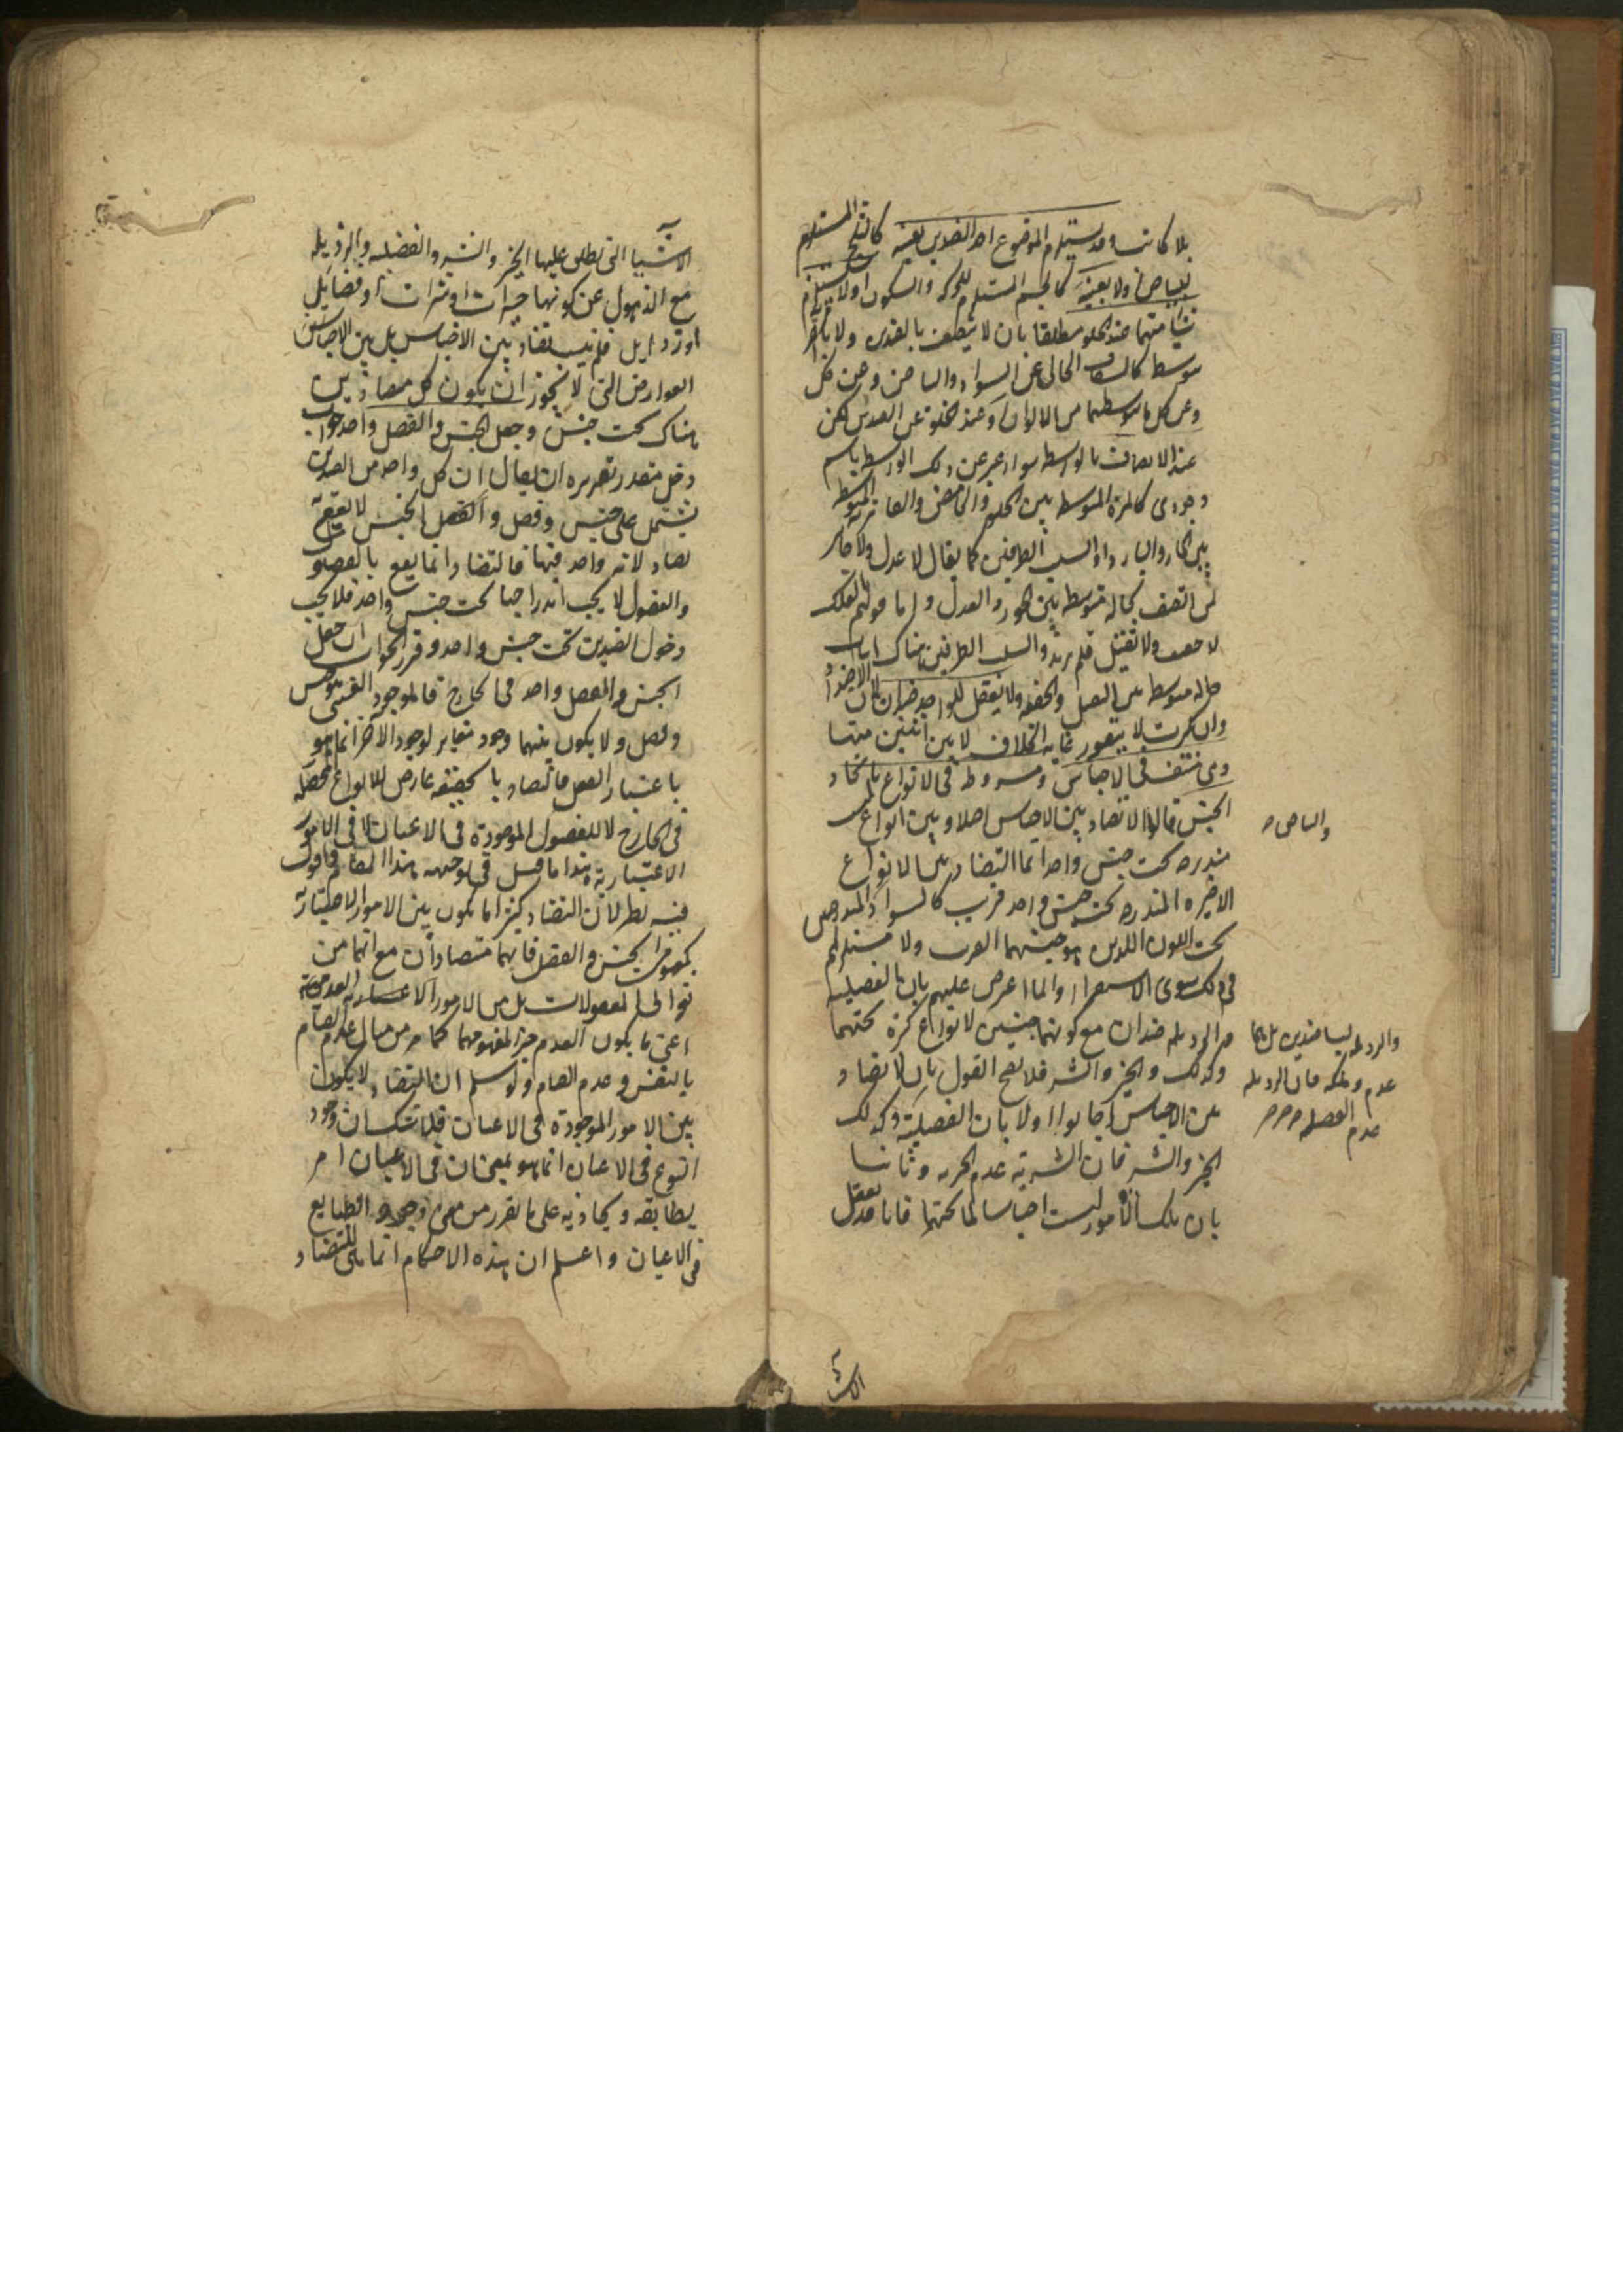 بلا كاتب وقد يستلزم الموضوع احد الضدين بعينه كالثلج المستلزم
للبياض اولا بعينه كالجسم المستلزم للحركة والسكون اولا يستلزم
شيا منهما عند الخلو مطلقا بان لا يتصف بالضدين ولا
بوسط كالشفاف الخالى عن السواد والبياض وعن كل
وعن كل ما يتوسطهما من الالوان وعند الخلو عن الضدين لكن
عند الاتصاف بالوسط سواء عبر عن ذلك الوسط باسم
وجودى كالمزة المتوسط بين الحلو والحامض والفاتر المتوسط
بين الحار والبارد او بسلب الطرفين كما يقال لا عدل ولا جائر
لمن اتصف بحالة متوسطة بين الجور والعدل واما قولهم الفلك
لا خفيف ولا ثقيل فلم يرد والسلب الطرفين هناك اثبات
حالة متوسطة بين الثقل والخفة ولا يعقل للواحد ضدان لان الاضداد
وان كثرت لا يتصور غاية الخلاف الا بين اثنين منها
وهى منتف فى الاجناس ومشروط فى الانواع باتحاد
الجنس قالوا لا تضاد بين الاجناس اصلا وبين انواع ليست
مندرجة تحت جنس واحد انما التضاد بين الانواع
الاخيرة المندرجة تحت جنس واحد قريب كالسواد المندرجين
والبياض
تحت اللون الذى هو جنسهما القريب ولا مستند لهم
فى ذلك سوى الاستقراء ولما اعترض عليهم بان الفضيلة
والرذيلة ضدان مع كونهما جنسين لانواع كثيرة تحتهما
وكذلك الخير والشر فلا يصح القول بان لا تضاد
بين الاجناس اجابوا اولا بان الفضيلة وكذلك
والرذيلة ليسا ضدين بل هما
عدم وملكة فان الرذيلة
عدم الفضيلة
الخير والشر فان الشرية عدم الخيرية وثانيا
بان تلك الامور ليست اجناسا لما تحتها فانا قد نعقل
الاشيا
الاشيا التى يطلق عليها الخير والشر والفضيلة والرذيلة
مع الذهول عن كونها خيرات او شرات او فضايل
او رذايل فلم يثبت تضاد بين الاجناس بل بين الاجناس
العوارض التى لا يجوز ان يكون كل متضادين
هناك تحت جنس وجعل الجنس والفصل واحد جواب
دخل مقدر تقريره ان يقال ان كل واحد من الضدين
يشتمل على جنس وفصل والفصل الجنس لا يقع به
تضاد لانه واحد فيهما فالتضاد انما يقع بالفصول
والفصول لا يجب اندراجها تحت جنس واحد فلا يجب
دخول الضدين تحت جنس واحد وقرر الجواب ان جعل
الجنس والفصل واحد فى الخارج فالموجود الشى هو جنس
وفصل ولا يكون بينهما وجود مغاير لوجود الاخر انما هو
باعتبار العقل فالتضاد بالحقيقة عارض للانواع المحصلة
فى الخارج لا للفصول الموجودة فى الاعيان لا فى الامور
الاعتبارية هذا ما قيل فى توجيه هذا المقام واقول
فيه نظر لان التضاد كثيرا ما يكون بين الامور الاعتبارية
كمفهومى الجنس والفصل فانهما متضادان مع انهما من
ثوانى المعقولات بل بين الامور الاعتبارية العدمية
اعنى ما يكون العدم جزا لمفهومها كما مر من مثال عدم القيام
بالنفس وعدم القيام ولو سلم ان التضاد لا يكون
بين الامور الموجودة فى الاعيان فلا شك ان وجود
النوع فى الاعيان انما هو بمعنى ان فى الاعيان امر
يطابقه ويحاذيه على ما تقرر من معنى وجود الطبايع
فى الاعيان واعلم ان هذه الاحكام انما هى للتضاد